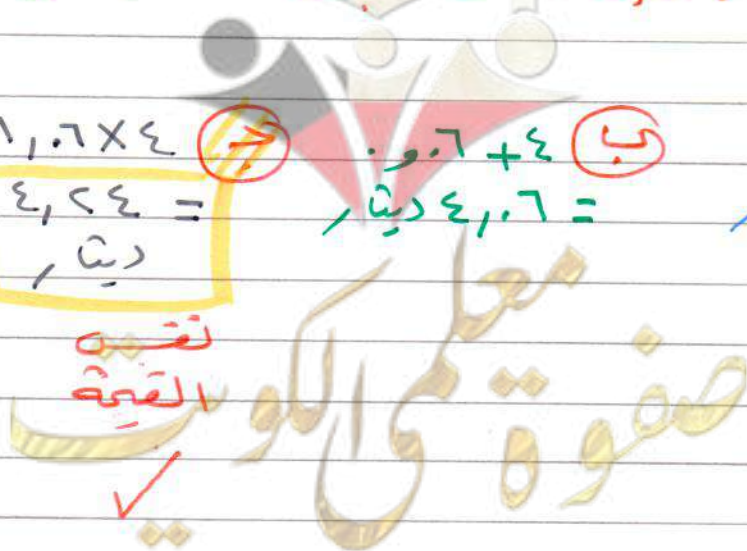 ب ٤ + ٠,٠٦
= ٤,٠٦ دينار
ج ٤ × ١,٠٦
= ٤,٢٤
دينار
نفس
القيمة
صفوة معلمى الكويت